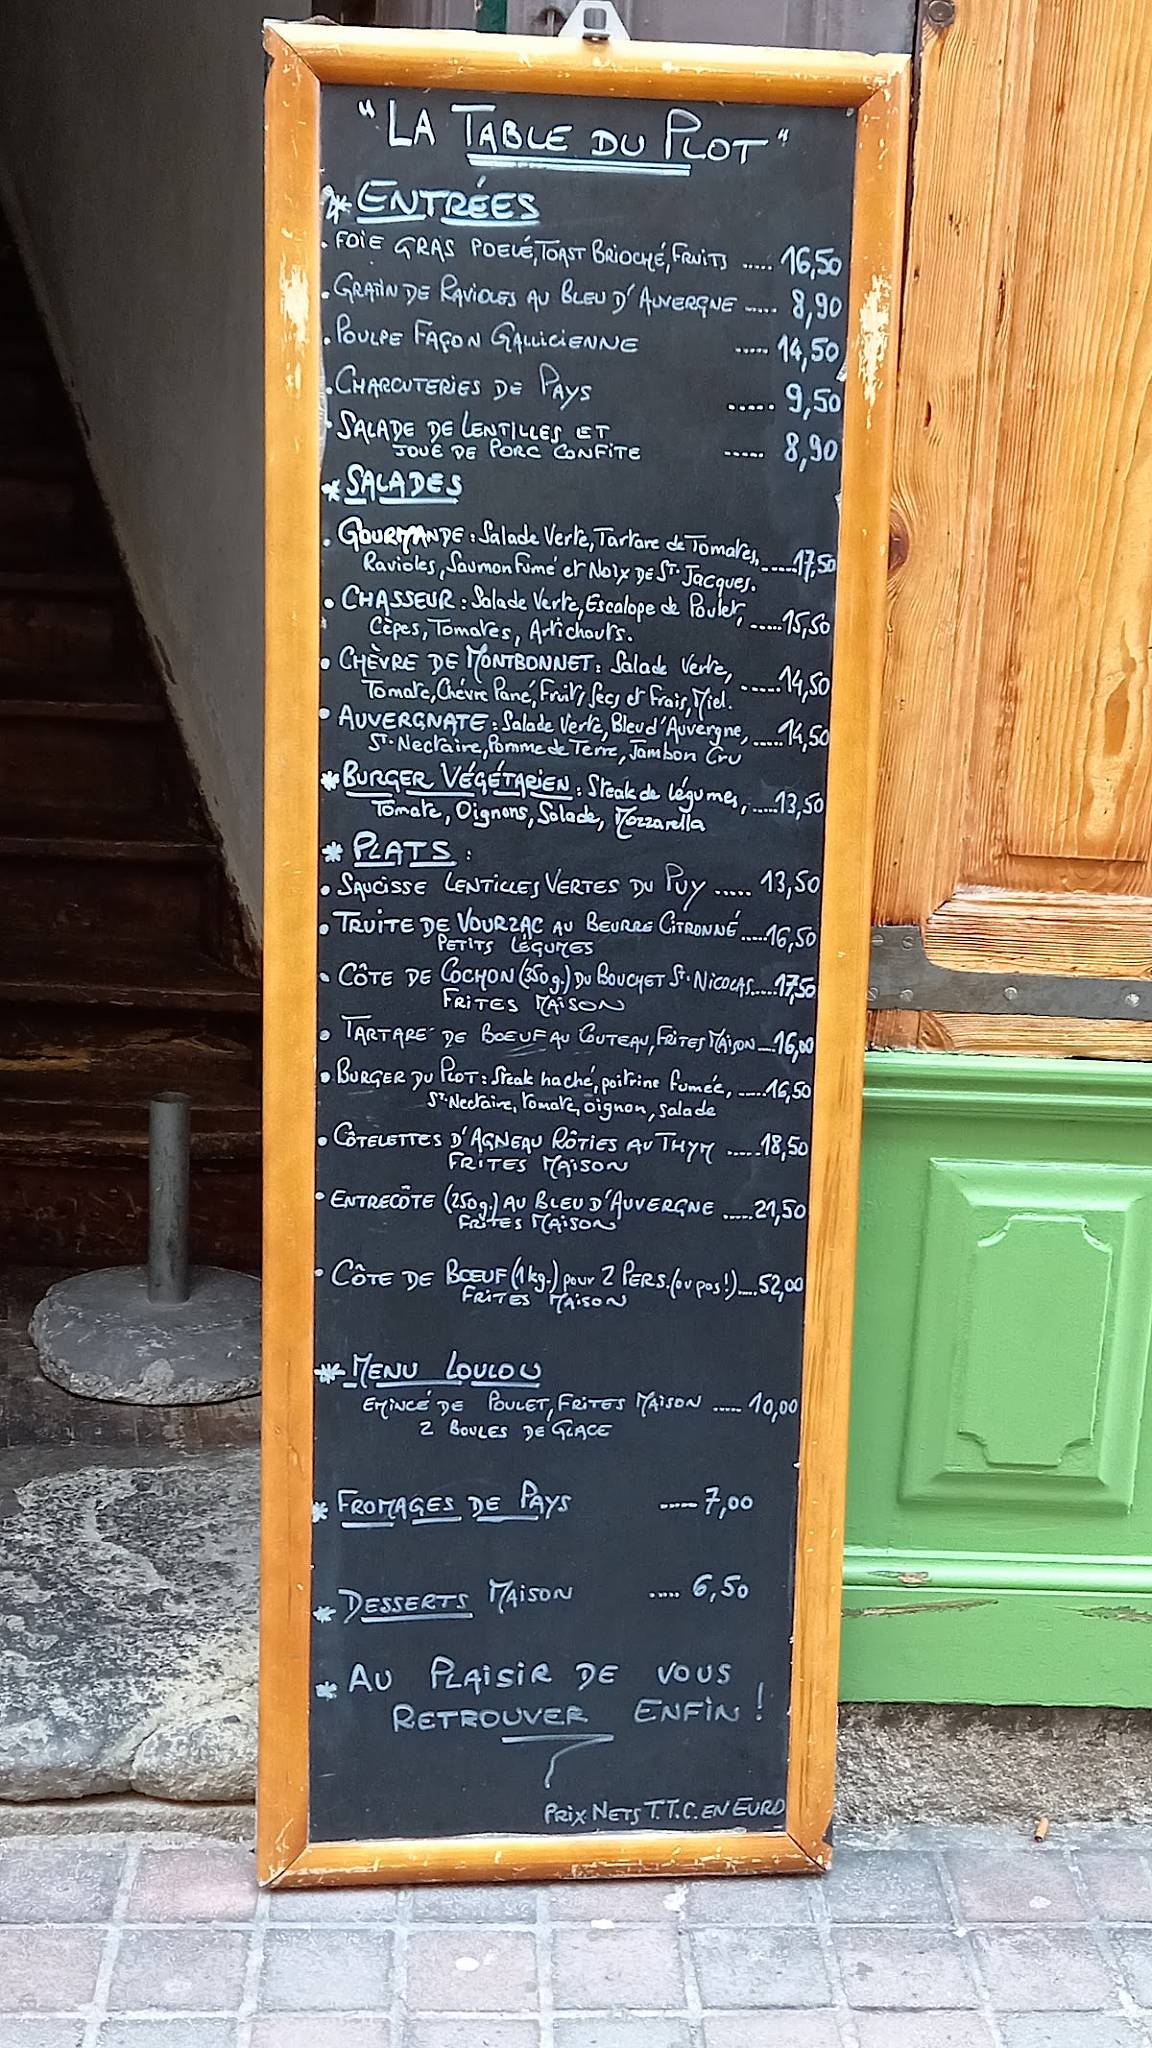 "LA TABLE DU PLOT"
* ENTRÉES
. FOIE GRAS POELÉ, TOAST BRIOCHÉ, FRUITS ..... 16,50
. GRATIN DE RAVIOLES AU BLEU D'AUVERGNE ..... 8,90
. POULPE FAÇON GALLICIENNE ..... 14,50
. CHARCUTERIES DE PAYS ..... 9,50
. SALADE DE LENTILLES ET
JOUE DE PORC CONFITE ..... 8,90
* SALADES
. GOURMANDE : Salade Verte, Tartare de Tomates,
Ravioles, Saumon Fumé et NOIX DE ST. Jacques. ......17,50
. CHASSEUR : Salade Verte, Escalope de Poulet,
Cèpes, Tomates, Artichauts. ......15,50
. CHÈVRE DE MONTBONNET : Salade Verte,
Tomate, Chèvre Pané, Fruits Secs et Frais, Miel. ......14,50
. AUVERGNATE : Salade Verte, Bleu d'Auvergne,
ST. Nectaire, Pomme de Terre, Jambon Cru ......14,50
* BURGER VÉGÉTARIEN : Steak de légumes, ......13,50
Tomate, Oignons, Salade, Mozzarella
* PLATS :
. SAUCISSE LENTILLES VERTES DU PUY ..... 13,50
. TRUITE DE VOURZAC AU BEURRE CITRONNÉ .....16,50
PETITS LÉGUMES
. CÔTE DE COCHON (350g.) DU BOUCHET ST. NICOLAS.....17,50
FRITES MAISON
. TARTARE DE BOEUF AU COUTEAU, FRITES MAISON ....16,00
. BURGER DU PLOT : Steak haché, poitrine fumée, .....16,50
ST. Nectaire, tomate, oignon, salade
. CÔTELETTES D'AGNEAU RÔTIES AU THYM .....18,50
FRITES MAISON
. ENTRECÔTE (250g.) AU BLEU D'AUVERGNE .....21,50
FRITES MAISON
. CÔTE DE BOEUF (1kg.) pour 2 PERS. (ou pas !)....52,00
FRITES MAISON
* MENU LOULOU
EMINCÉ DE POULET, FRITES MAISON ..... 10,00
2 BOULES DE GLACE
* FROMAGES DE PAYS ..... 7,00
* DESSERTS MAISON .... 6,50
* AU PLAISIR DE VOUS
RETROUVER ENFIN !
PRIX NETS T.T.C. EN EURO